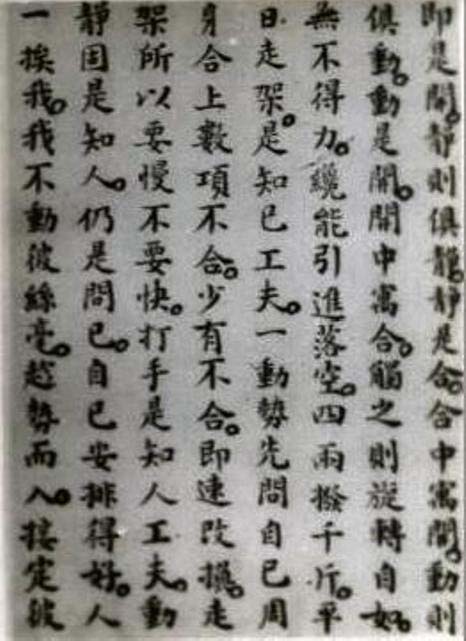 即是開。静則俱静。静是合。合中寓開。動則
俱動。動是開。開中寓合。觸之則旋轉自如。
無不得力。纔能引進落空。四兩撥千斤。平
日走架。是知己工夫。一動勢先問自己周
身合上數項不合。少有不合。即速改換。走
架所以要慢不要快。打手是知人工夫。動
静固是知人。仍是問己。自己安排得好。人
一挨我。我不動彼絲毫。趁勢而入。接定彼